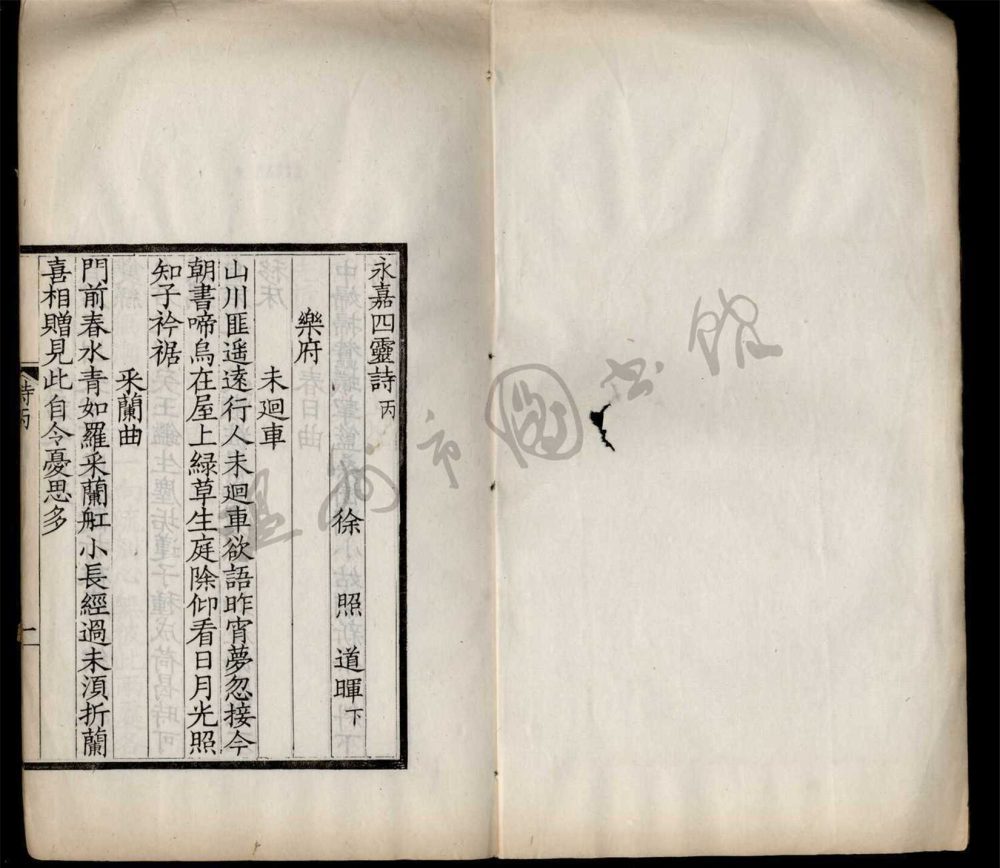 永嘉四靈詩丙
徐照道暉下
樂府
未迴車
山川匪遥遠行人未迴車欲語昨宵夢忽接今
朝書啼烏在屋上緑草生庭除仰看日月光照
知子衿裾
采蘭曲
門前春水青如羅采蘭舡小長經過未湏折蘭
喜相贈見此自令憂思多
詩丙
一
温州市圖书馆